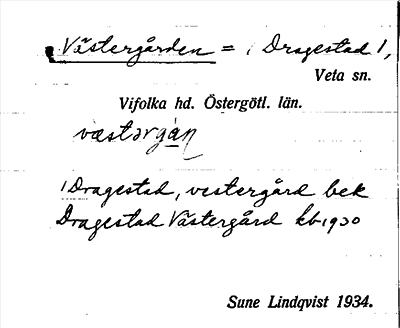 Västergården = , Dragestad 1,
Veta sn.
Vifolka hd. Östergötl. län.
væstərgàn
1 Dragestad, vestergård bek
Dragestad Västergård kb 1930
Sune Lindqvist 1934.